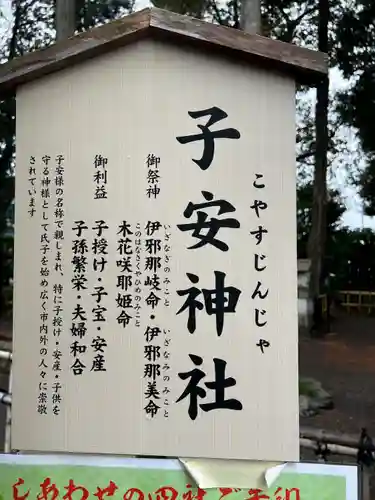 子安神社
こやすじんじゃ
御祭神
伊邪那岐命・伊邪那美命
いざなぎのみこと
いざなみのみこと
木花咲耶姫命
このはなさくやひめのみこと
御利益
子授け・子宝・安産
子孫繁栄・夫婦和合
子安様の名称で親しまれ、特に子授け・安産・子供を
守る神様として氏子を始め広く市内外の人々に崇敬
されています
しあわせの四社ご朱印